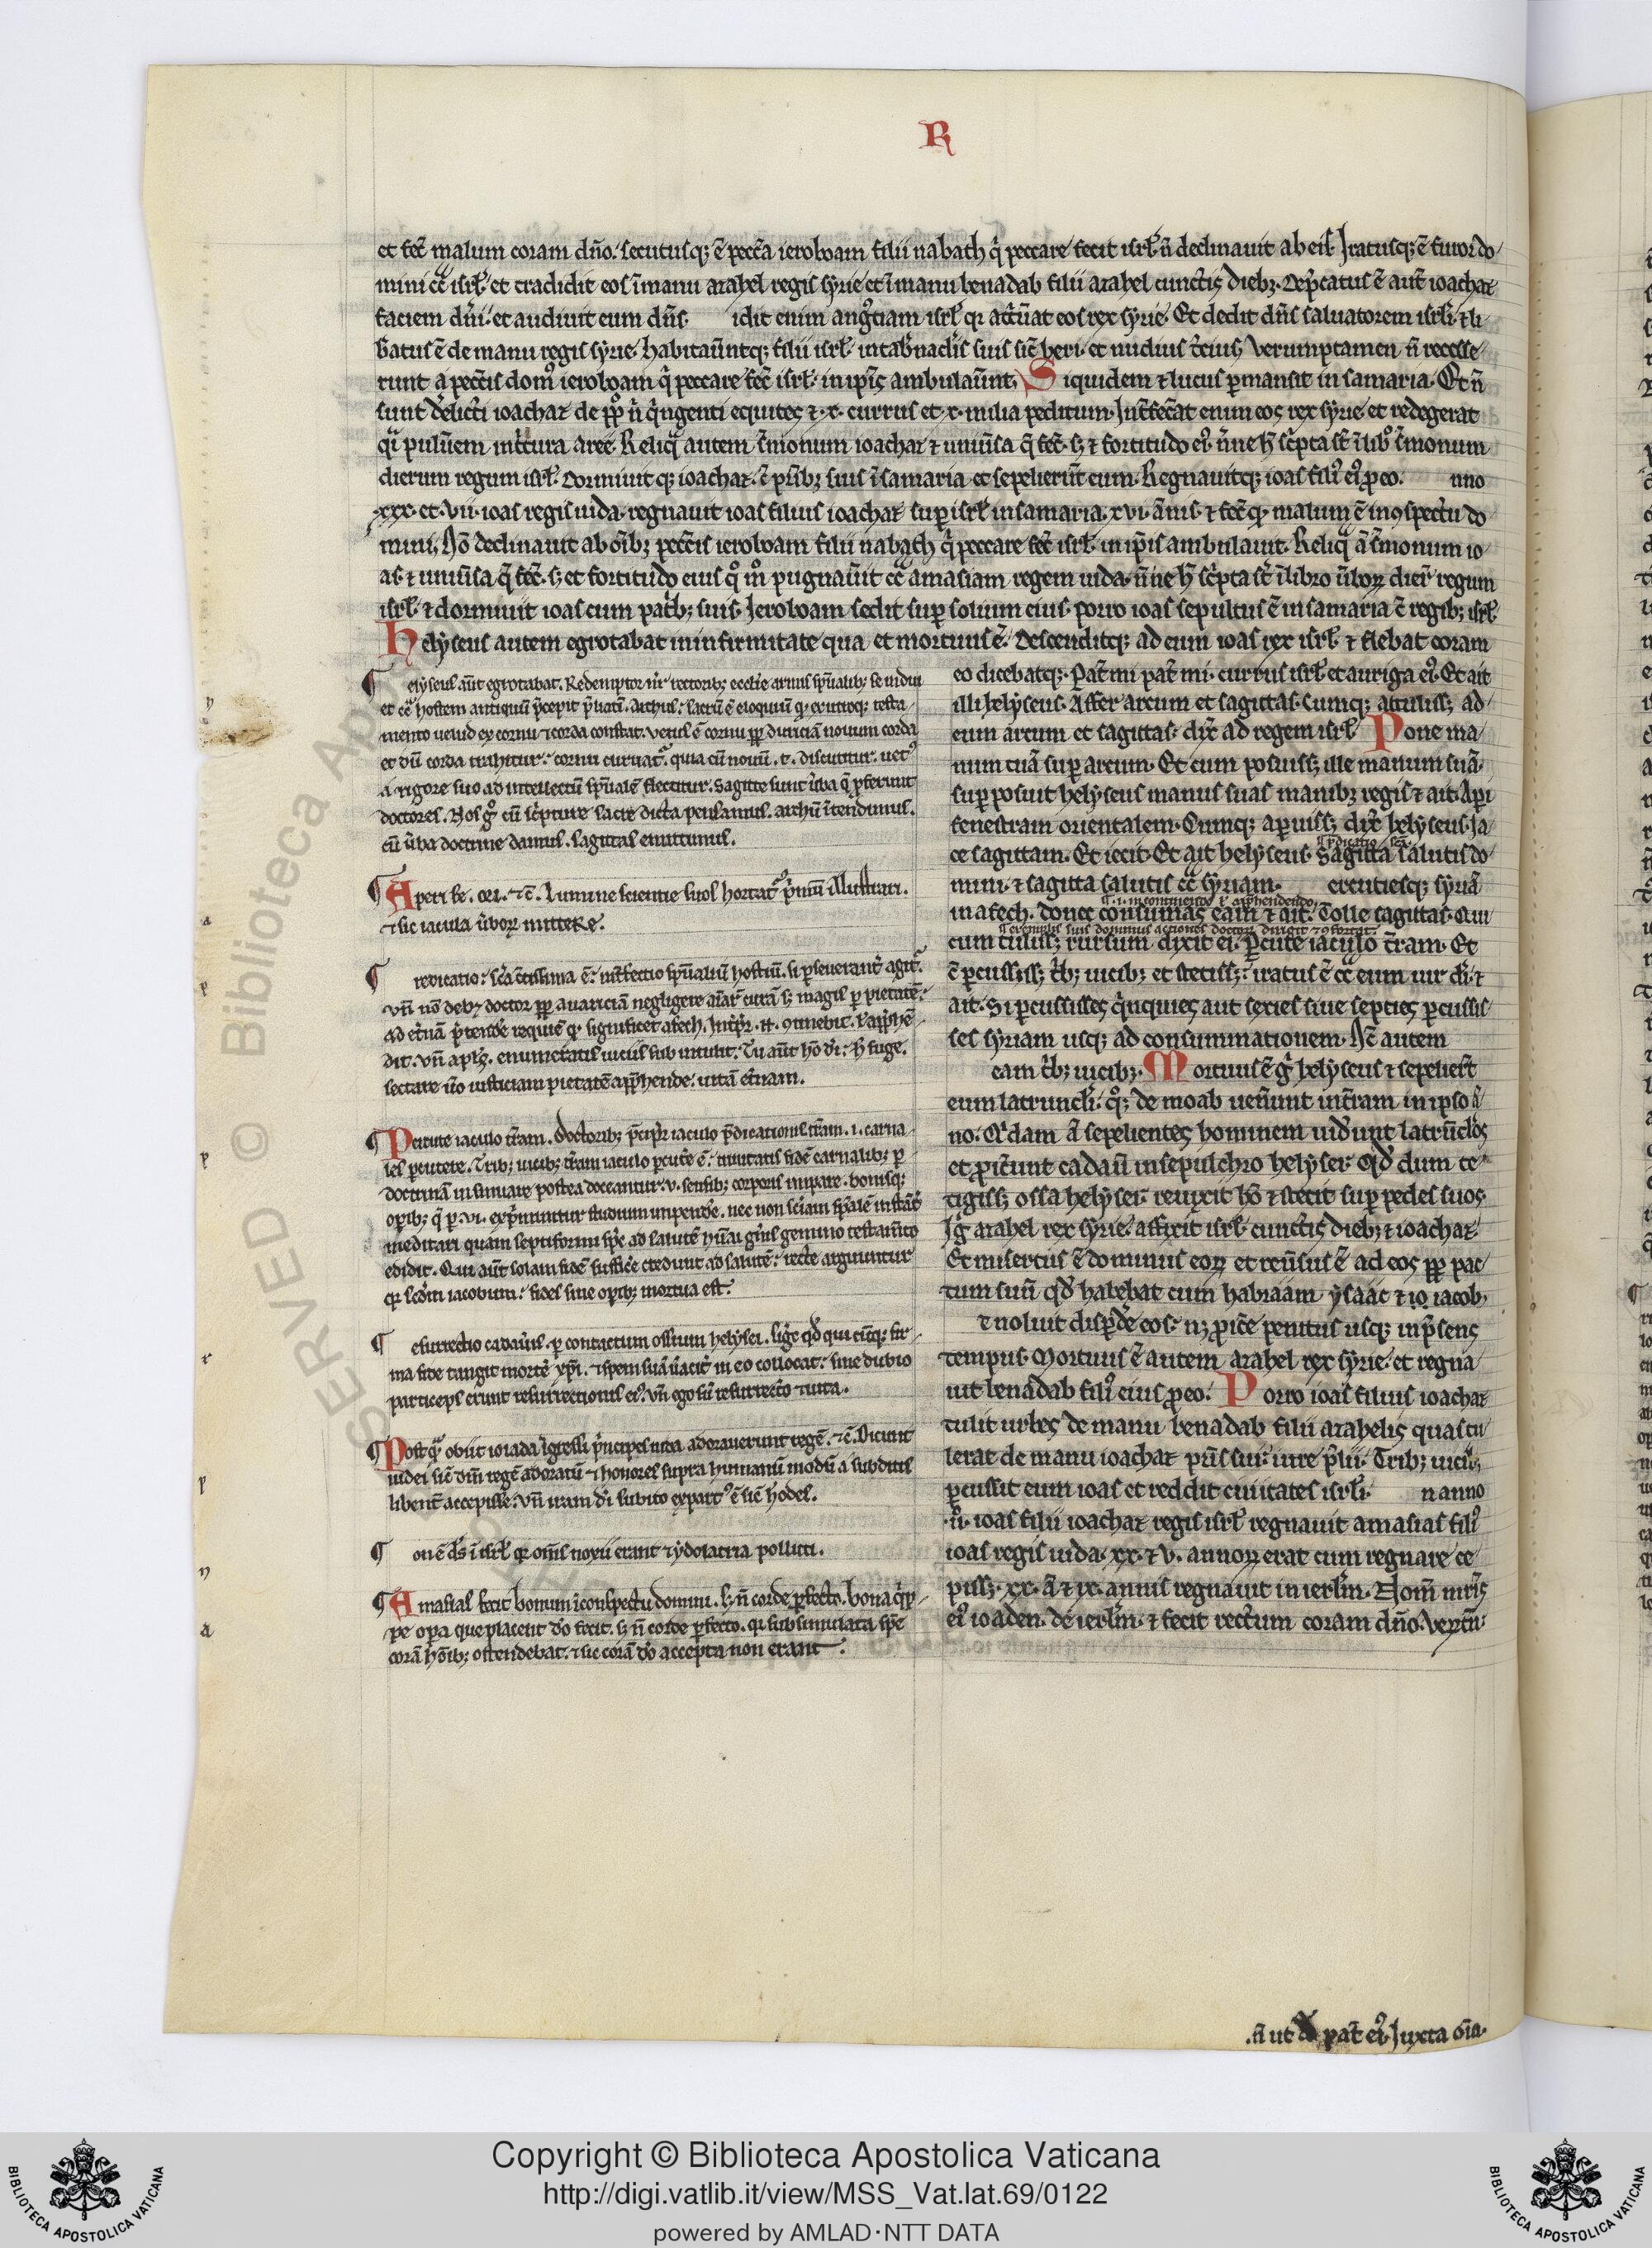 R
et fec̄ malum coram dño. secutusq; ē pecc̄a ieroboam filii nabath q̇ peccare fecit isrl̄. n̄ declinauit ab eis. Iratusq; ē furor do
mini cͣ isrl̄. et tradidit eos ī manu azahel regis syrie et ī manu benadab filii azahel cunctis dieb;. Dep̄catus ē aut̄ ioachaz
faciem dn̄i. et audiuit eum dn̄s. idit enim angꝰtiam isrl̄ qꝛ att̄uat eos rex syrie. Et dedit dn̄s saluatorem isrl̄i. ⁊ li
b̄atus ē de manu regis syrie. habitau̅ntq; filii isrl̄. in tab̄naclis suis sic̄ heri. et nudius t̄cius. Verumptamen n̄ recesse
runt a pecc̄is domꝰ ieroboam q̇ peccare fec̄ isrl̄. in ip̄is ambulau̅nt. Siquidem ⁊ lucus ꝑmansit in samaria. Et n̄
sunt d̄elicti ioachaz de pp̄lo n̄ q̇ngenti equites ⁊ .x. currus et .x. milia peditum. Int̄fec̄at enim eos rex syrie et redegerat
qͣ puluēm in t̄tura aree. Reliqͣ autem s̄monum ioachaz ⁊ uniu̅sa q̄ fec̄. s; ⁊ fortitudo eiꝰ. n̄ne h̄ sc̄pta st̄ ī libꝰ s̄monum
dierum regum isrl̄. Dormiuitq; ioachaz. c̄ pr̄ib; suis ī samaria et sepelierūt eum. Regnauitq; ioas filiꝰ eiꝰ ꝓ eo. nno
.xxx. et .vii. ioas regis iuda. regnauit ioas filius ioachaz suꝑ isrl̄ in samaria .xvi. ānis. ⁊ fec̄ qꝛ malum ē in ꝯspectu do
mini. Nō declinauit ab oīb; pecc̄is ieroboam filii nabath q̇ peccare fec̄ isrl̄. in ip̄is ambulauit. Reliqͣ ā s̄monum io
as. ⁊ uniu̅sa q̄ fec̄. s; et fortitudo eius qͦ mͦ pugnau̅it cͣ amasiam regem iuda. n̄ne h̄ sc̄pta st̄ ī libro u̅boꝝ dier̄ regum
isrl̄. ⁊ dormiuit ioas cum pat̄b; suis. Ieroboam sedit suꝑ solium eius. Porro ioas sepultus ē in samaria c̄ regib; isrl̄.
Helyseus autem egrotabat in infirmitate qua et mortuus ē. Descenditq; ad eum ioas rex isrl̄. ⁊ flebat coram
¶ elyseus aut̄ egrotabat. Redemptor nr̄ rectorib; ecclīe armis sp̄ualib; se indui
et cͣ hostem antiquū p̄cepit p̄liari. Archus. sacrū ē eloquiū qꝛ ex utroq; testa
mento uelud ex cornu ⁊ corda constat. Vetus ē cornu ꝓpt̄ duriciā nouum corda
et dū corda trahitur. cornu curuat᷑. quia cū nouū .t. discutitur. uetꝰ
a rigore suo ad intellectū sp̄ualē flectitur. Sagitte sunt u̅ba q̄ ꝓferunt
doctores. Nos gͦ cū sc̄pture sacre dicta pensamus. archū ītendimus.
cū u̅ba doctrine damus. sagittas emittimus.
¶ Aperi fe. ori. ⁊c̄. Lumine scientie suos hortat᷑ p̄mū illustrari.
⁊ sic iacula u̅boꝝ mittere.
¶ redicatio. sc̄a ac̄tissima ē. int̄fectio sp̄ualiū hostiū. si ꝑseuerant̄ agit᷑.
Vn̄ nō deb; doctor ꝓpt̄ auariciā negligere aīaꝝ curā s; magis ꝑ pietatē.
ad et̄nā p̄tende requiē qꝛ significet afech. Int̄p̄r .n. ꝯtinebit. ł app̄hē
dit. Vn̄ apl̄s. enumeratis uiciis sub intulit. Tu aut̄ hō dī. h̄ fuge.
sectare u̅o iusticiam pietatē app̄hende. uitā et̄nam.
¶ Percute iaculo t̄ram. Doctorib; p̄cipit᷑ iaculo p̄dicationis t̄ram .i. carna
les ꝑcutere. Trib; uicib; t̄ram iaculo ꝑcut̄e ē. trinitatis fidē carnalib; ꝑ
doctrinā insinuare postea doceantur .v. sensib; corporis imꝑare. bonisq;
oꝑib; q̄ ꝑ .vi. exp̄muntur studium impend̄e. nec non sc̄iam sp̄ualē instāt᷑
meditari quam septiformi sp̄c ad salutē hūani gn̄is gemino testam̄to
edidit. Qui aut̄ solam fidē suffic̄e credunt ad salutē. recte arguuntur
qꝛ sc̄dm iacobum. fides sine oꝑib; mortua est.
¶ esurrectio cadau̅is. ꝑ contactum ossium helysei. sig̅t qd̄ qui cūq; fir
ma fide tangit mortē xp̄i. ⁊ spem suā u̅acit᷑ in eo collocat. sine dubio
particeps erunt resurrectionis eiꝰ. Vn̄ ego sū resurrectō ⁊ uita.
¶ Post qͣ obiit ioiada ī gressi p̄ncipes iuda adorauerunt regē. ⁊c̄. Dicunt
iudei sic̄ dm̄ regē adoratū ⁊ honores supra humanū modū a subditis
libent̄ accepisse. Vn̄ iram dī subito exꝑtꝰ ē sic̄ herodes.
¶ on ē ds̄ ī isrl̄ qꝛ om̄s noxii erant ⁊ ydolatria polluti.
¶ Amasias fecit bonum ī conspectu domini. s; n̄ corde ꝑfecto. bona q̇p
pe oꝑa que placent dō fecit. s; n̄ corde ꝑfecto. qꝛ sub simulata spē
corā hoīb; ostendebat. ⁊ sic corā dō accepta non erant.
eo dicebatq;. Pat̄ mi pat̄ mi. currus isrl̄ et auriga eiꝰ. Et ait
illi helyseus. Affer arcum et sagittas. Cumq; attuliss; ad
eum arcum et sagittas. dix̄ ad regem isrl̄. Pone ma
num tuā suꝑ arcum. Et cum posuiss; ille manum suā.
suꝑposuit helyseus manus suas manib; regis ⁊ ait. Aꝑi
fenestram orientalem. Cumq; aꝑuiss; dix̄ helyseus. Ia
ce sagittam. Et iecit. Et ait helyseus. Sagitta salutis do
mini. ⁊ sagitta salutis cͣ syriam. ercutiesq; syriā
in afech. donec consumas eam ⁊ ait. Tolle sagittas. Qui
¶ exemplis suis dominus actiones doctoꝝ dirigit ⁊ ꝯfortat.
cum tuliss; rursum dixit ei. ꝑcute iaculo t̄ram. Et
c̄ ꝑcussiss; t̄b; uicib; et stetiss;. iratus ē cͣ eum uir dī. ⁊
ait. Si ꝑcussisses q̇nquies aut sexies siue septies ꝑcussis
ses syriam usq; ad consummationem. Nc̄ autem
eam t̄b; uicib;. Mortuus ē gͦ helyseus ⁊ sepelier̄t
eum. latrunc̄li. qͦ; de moab uen̄unt in t̄ram in ipso ā
no. Q̇dam ā sepelientes hominem uid̄unt latrūclos
et ꝓiec̄unt cadau̅ in sepulchro helysei. Qd̄ dum te
tigiss; ossa helysei. reuixit hō ⁊ stetit suꝑ pedes suos
Ig̅ azahel rex syrie. afflixit isrl̄ cunctis dieb; ⁊ ioachaz.
Et misertus ē dominus eoꝝ et reu̅sus ē ad eos ꝓpt̄ pac
tum suū qd̄ habebat cum habraam ysaac ⁊ iacob.
t noluit disꝑd̄e eos. n; ꝓic̄e penitus usq; in p̄sens
tempus. Mortuus ē autem azahel rex syrie. et regna
uit benadab filiꝰ eius ꝓ eo. Porro ioas filius ioachaz
tulit urbes de manu benadab filii azahelis quas tu
lerat de manu ioachaz pr̄is sui. iure p̄lii. Trib; uicib;
ꝑcussit eum ioas et reddit ciuitates isrl̄i. n anno
.ii. ioas filii ioachaz regis isrl̄ regnauit amasias filiꝰ
ioas regis iuda. xx. ⁊ v. annoꝝ erat cum regnare ce
piss;. xx. ā ⁊ ix. annis regnauit in ierl̄m. Nom̄ mr̄is
eiꝰ ioaden. de ierl̄m. ⁊ fecit rectum coram dño. Veꝝptn̄.
.n̄ ut pat̄ eiꝰ. Iuxta oīa.
Copyright © Biblioteca Apostolica Vaticana
http://digi.vatlib.it/view/MSS_Vat.lat.69/0122
powered by AMLAD·NTT DATA
BIBLIOTECA APOSTOLICA VATICANA
BIBLIOTECA APOSTOLICA VATICANA